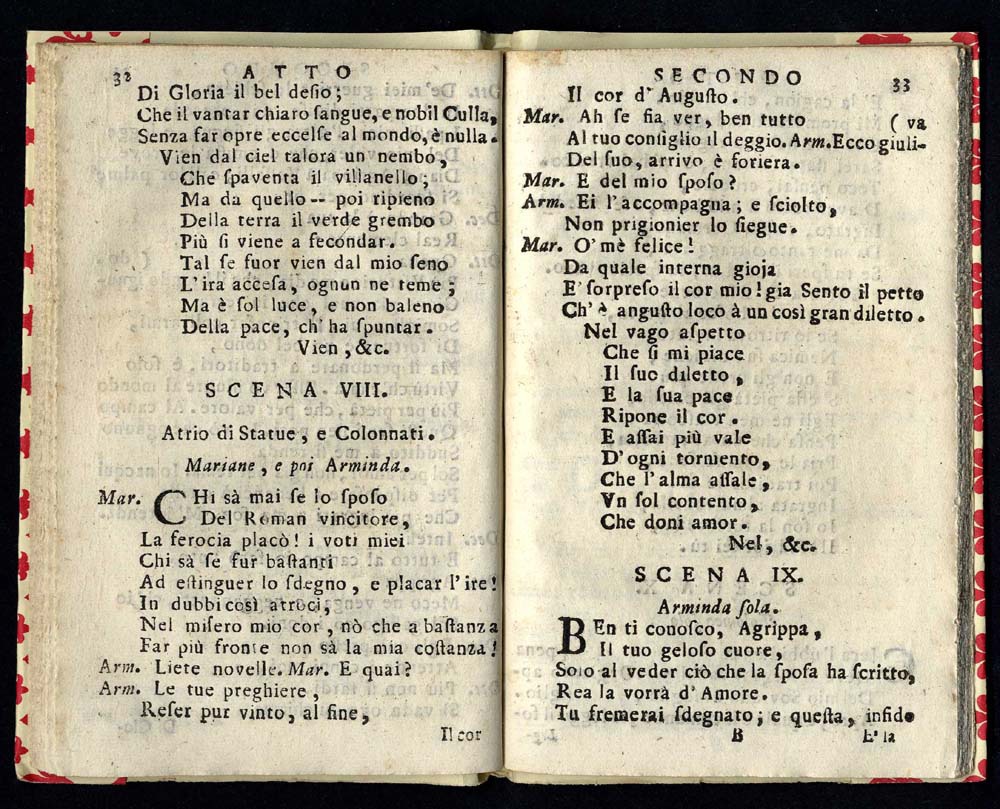 32
ATTO
Di Gloria il bel deſio;
Che il vantar chiaro ſangue, e nobil Culla,
Senza far opre eccelſe al mondo, è nulla.
Vien dal ciel talora un nembo,
Che ſpaventa il villanello;
Ma da quello -- poi ripieno
Della terra il verde grembo
Più ſi viene a fecondar.
Tal ſe fuor vien dal mio ſeno
L'ira acceſa, ognun ne teme;
Ma è ſol luce, e non baleno
Della pace, ch'ha ſpuntar.
Vien, &c.
SCENA VIII.
Atrio di Statue, e Colonnati.
Mariane, e poi Arminda.
Mar. CHi sà mai ſe lo ſpoſo
Del Roman vincitore,
La ferocia placò! i voti miei
Chi sà ſe fur baſtanti
Ad eſtinguer lo ſdegno, e placar l'ire!
In dubbi così atroci,
Nel miſero mio cor, nò che a baſtanza
Far più fronte non sà la mia coſtanza!
Arm. Liete novelle. Mar. E quai?
Arm. Le tue preghiere,
Reſer pur vinto, al fine,
Il cor
SECONDO
33
Il cor d'Auguſto.
Mar. Ah ſe ſia ver, ben tutto (va
Al tuo conſiglio il deggio. Arm. Ecco giuli-
Del ſuo, arrivo è foriera.
Mar. E del mio ſpoſo?
Arm. Ei l'accompagna; e ſciolto,
Non prigionier lo ſiegue.
Mar. O' mè felice!
Da quale interna gioja
E' ſorpreſo il cor mio! gia Sento il petto
Ch'è anguſto loco à un così gran diletto.
Nel vago aſpetto
Che ſi mi piace
Il ſuo diletto,
E la ſua pace
Ripone il cor.
E aſſai più vale
D'ogni tormento,
Che l'alma aſſale,
Vn ſol contento,
Che doni amor.
Nel, &c.
SCENA IX.
Arminda ſola.
BEn ti conoſco, Agrippa,
Il tuo geloſo cuore,
Solo al veder ciò che la ſpoſa ha ſcritto,
Rea la vorrà d'Amore.
Tu fremerai ſdegnato; e queſta, infido
B
E' la